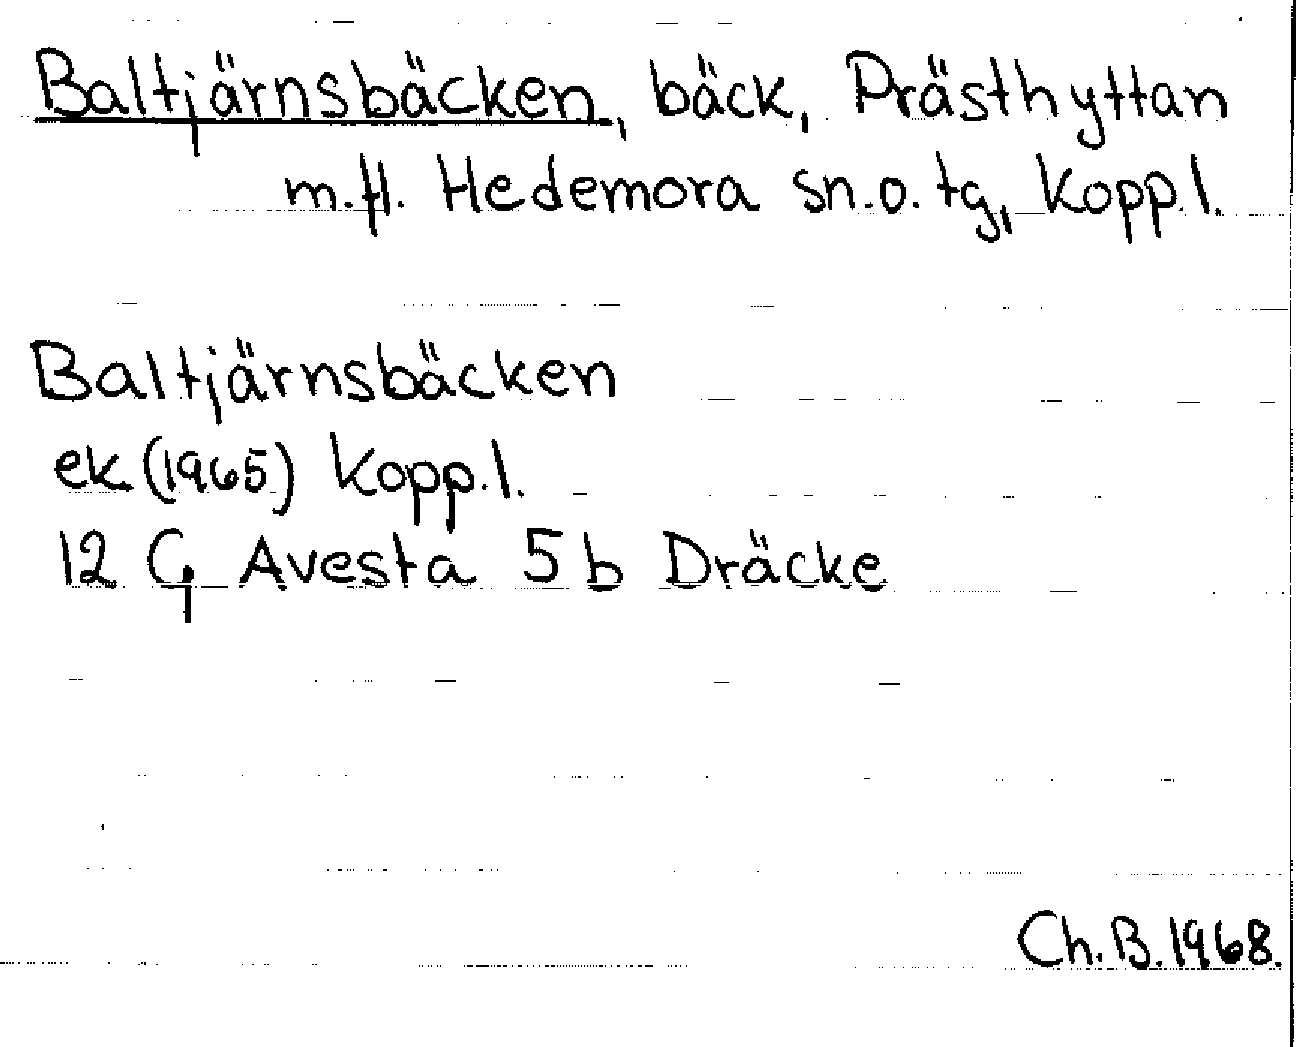 Baltjärnsbäcken, bäck, Prästhyttan
m.fl. Hedemora sn.o.tg, Kopp.l.
Baltjärnsbäcken
ek (1965) Kopp.l.
12 G Avesta 5 b Dräcke
Ch.B.1968.